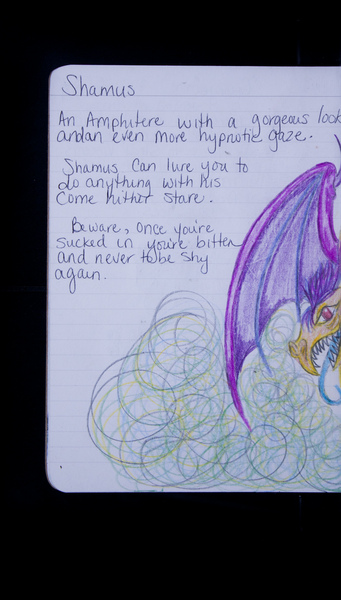 Shamus
An Amphitere with a gorgeous look
andan even more hypnotic gaze.
Shamus Can lure you to
do anything with his
Come hither stare.
Beware, Once you're
sucked in you're bitten
and never to be shy
again.